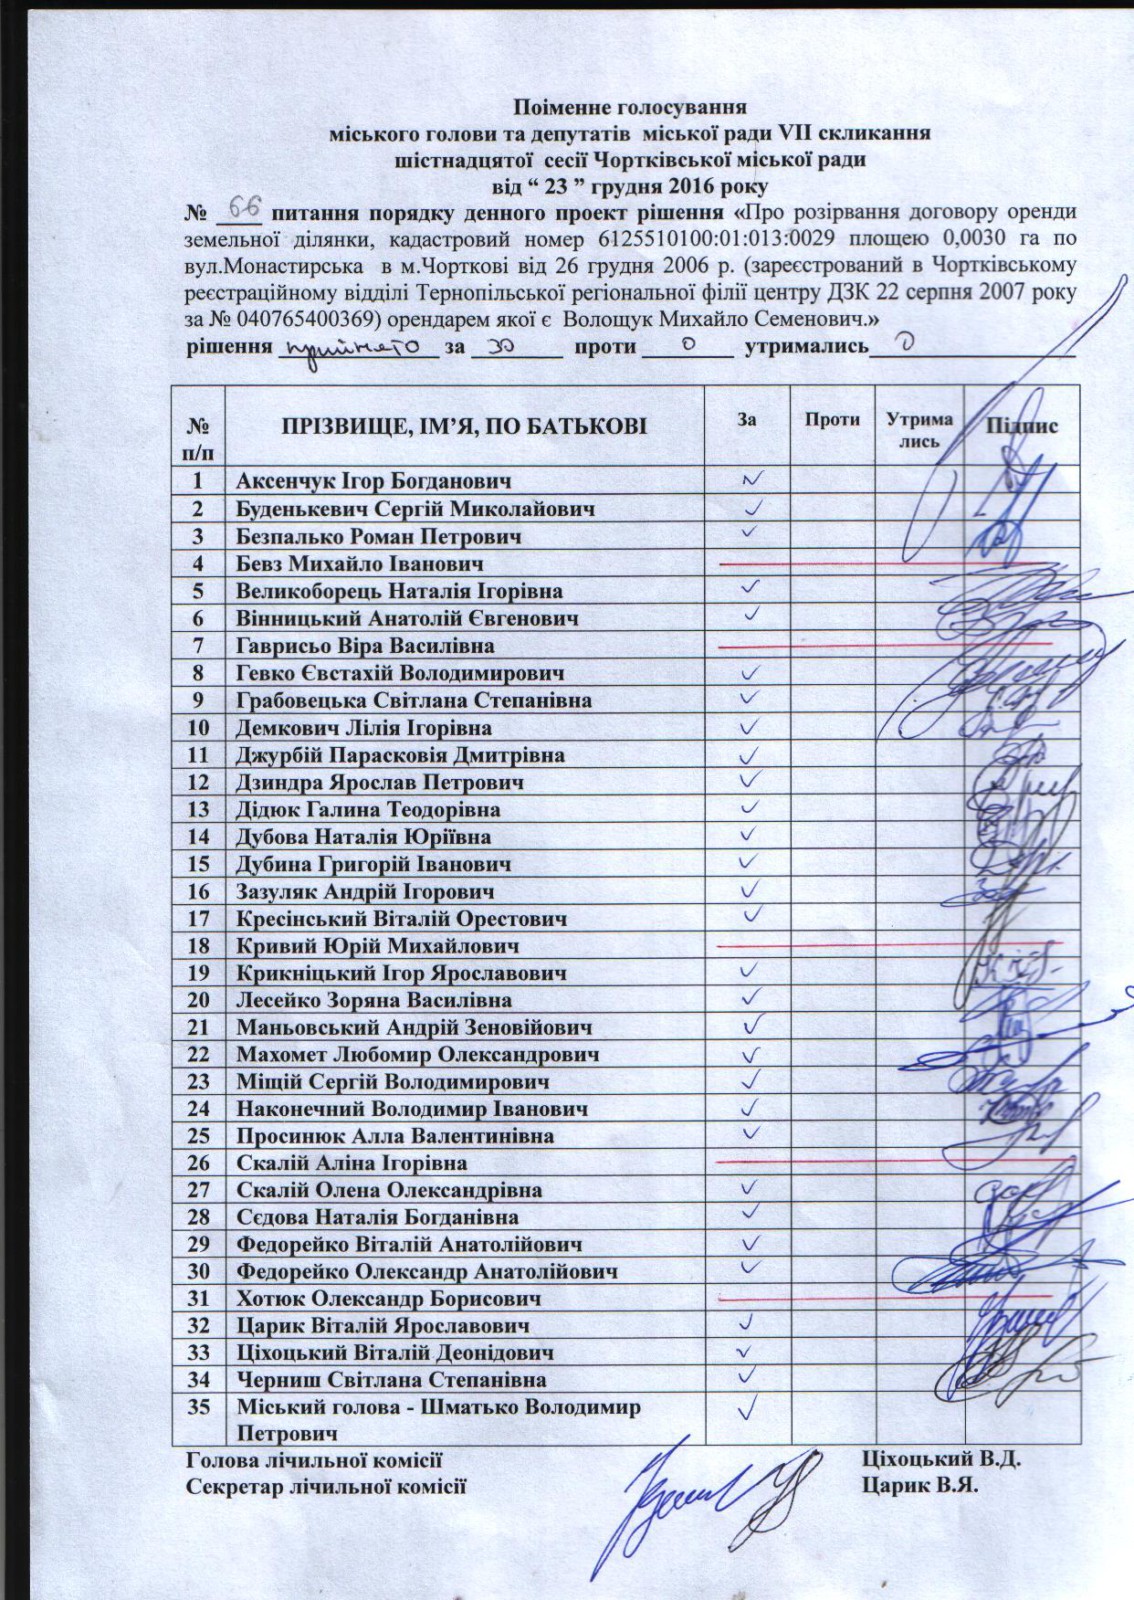 Поіменне голосування
міського голови та депутатів міської ради VII скликання
шістнадцятої сесії Чортківської міської ради
від “ 23 ” грудня 2016 року
№ 66 питання порядку денного проект рішення «Про розірвання договору оренди
земельної ділянки, кадастровий номер 6125510100:01:013:0029 площею 0,0030 га по
вул.Монастирська в м.Чорткові від 26 грудня 2006 р. (зареєстрований в Чортківському
реєстраційному відділі Тернопільської регіональної філії центру ДЗК 22 серпня 2007 року
за № 040765400369) орендарем якої є Волощук Михайло Семенович.»
рішення прийнято за 30 проти 0 утримались 0
№ п/п ПРІЗВИЩЕ, ІМ’Я, ПО БАТЬКОВІ За Проти Утрима лись Підпис
1 Аксенчук Ігор Богданович
2 Буденькевич Сергій Миколайович
3 Безпалько Роман Петрович
4 Бевз Михайло Іванович
5 Великоборець Наталія Ігорівна
6 Вінницький Анатолій Євгенович
7 Гаврисьо Віра Василівна
8 Гевко Євстахій Володимирович
9 Грабовецька Світлана Степанівна
10 Демкович Лілія Ігорівна
11 Джурбій Парасковія Дмитрівна
12 Дзиндра Ярослав Петрович
13 Дідюк Галина Теодорівна
14 Дубова Наталія Юріївна
15 Дубина Григорій Іванович
16 Зазуляк Андрій Ігорович
17 Кресінський Віталій Орестович
18 Кривий Юрій Михайлович
19 Крикніцький Ігор Ярославович
20 Лесейко Зоряна Василівна
21 Маньовський Андрій Зеновійович
22 Махомет Любомир Олександрович
23 Міщій Сергій Володимирович
24 Наконечний Володимир Іванович
25 Просинюк Алла Валентинівна
26 Скалій Аліна Ігорівна
27 Скалій Олена Олександрівна
28 Сєдова Наталія Богданівна
29 Федорейко Віталій Анатолійович
30 Федорейко Олександр Анатолійович
31 Хотюк Олександр Борисович
32 Царик Віталій Ярославович
33 Ціхоцький Віталій Деонідович
34 Черниш Світлана Степанівна
35 Міський голова - Шматько Володимир
Петрович
Голова лічильної комісії Ціхоцький В.Д.
Секретар лічильної комісії Царик В.Я.